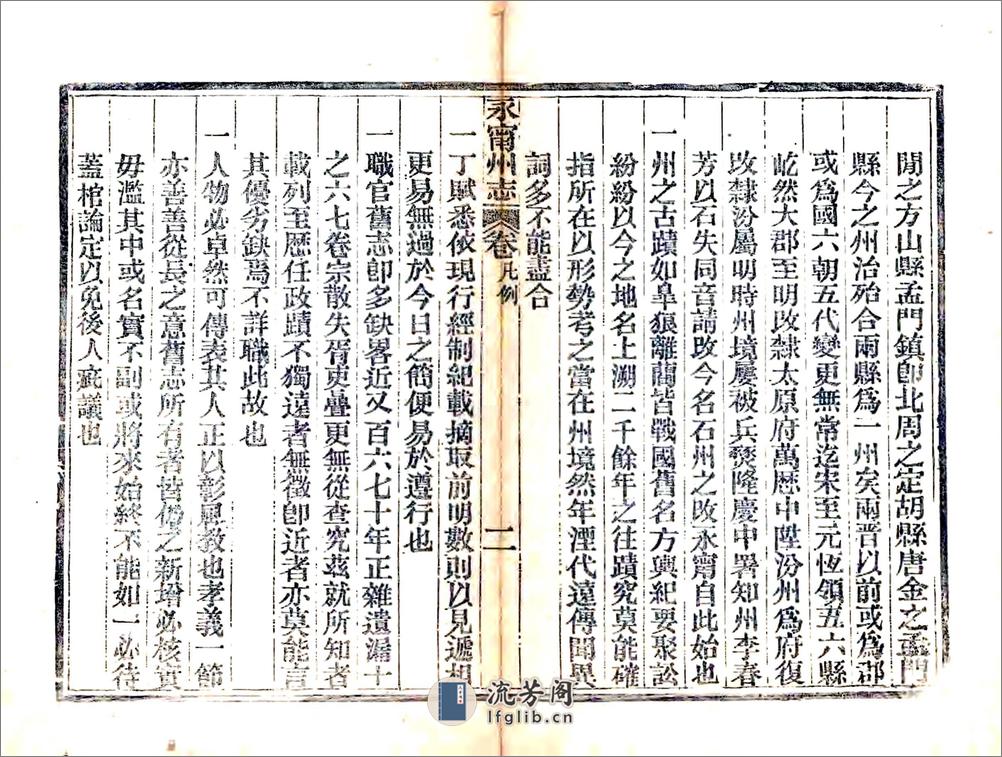 閒之方山縣孟門鎮卽北周之定胡縣唐金之孟門
縣今之州治殆合兩縣爲一州矣兩晉以前或爲郡
或爲國六朝五代變更無常迄宋至元恆領五六縣
屹然大郡至明改隸太原府萬歷中陞汾州爲府復
改隸汾屬明時州境屢被兵燹隆慶中署知州李春
芳以石失同音請改今名石州之改永甯自此始也
一州之古蹟如臯狼離藺皆戰國舊名方輿紀要聚訟
紛紛以今之地名上溯二千餘年之往蹟究莫能確
指所在以形勢考之當在州境然年湮代遠傳聞異
詞多不能盡合
永甯州志 卷 凡例 二
一丁賦悉依現行經制紀載摘取前明數則以見遞相
更易無過於今日之簡便易於遵行也
一職官舊志卽多缺畧近又百六七十年正雜遺漏十
之六七卷宗散失胥吏疊更無從查究茲就所知者
載列至歷任政蹟不獨遠者無徵卽近者亦莫能言
其優劣缺焉不詳職此故也
一人物必卓然可傳表其人正以彰風教也孝義一節
亦善善從長之意舊志所有者皆仍之新增必核實
毋濫其中或名實不副或將來始終不能如一必待
蓋棺論定以免後人疵議也
流芳阁
lfglib.cn